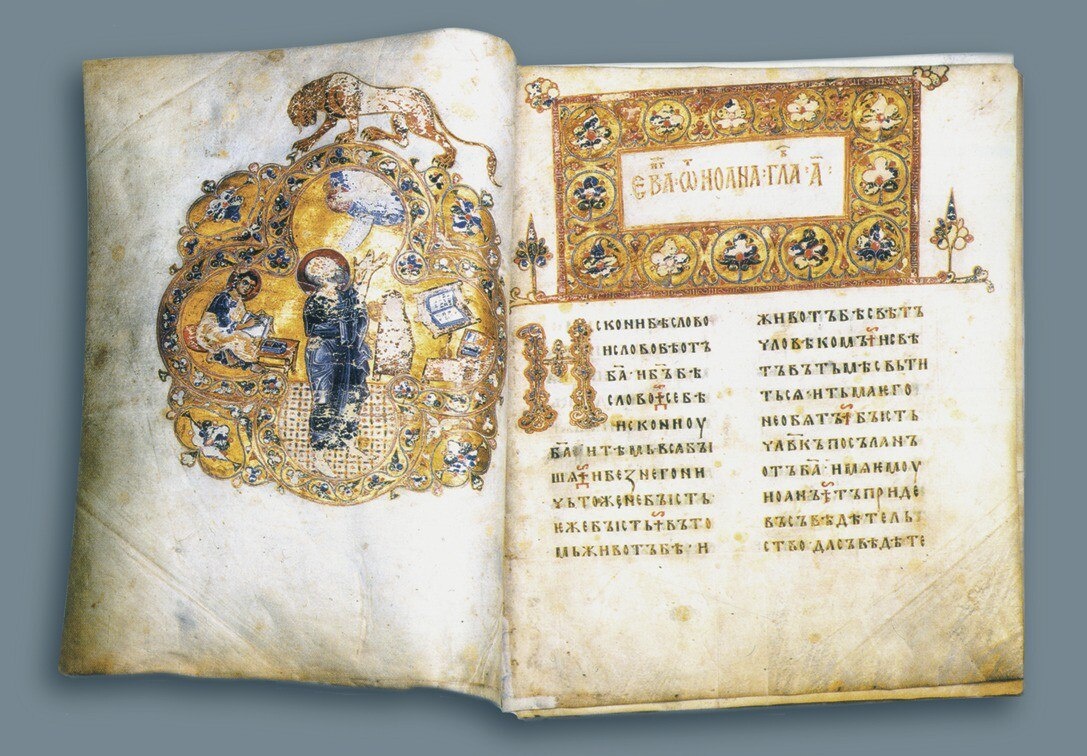 ЕВА·Ѡ ИОАНА·ГЛА·А҃·
ИСКОНИ БѢ СЛОВО
И СЛОВО БѢ ОТЪ
Б҃А И Б҃Ъ БѢ
СЛОВО СЕ БѢ
ИСКОНИ ОУ
Б҃А И ТѢМЬ ВЬСА БЫ
ШѦ И БЕЗ НЕГО НИ
ЧЬТОЖЕ НЕ БЫСТЬ·
ЕЖЕ БЫСТЬ ВЪ ТО
МЬ ЖИВОТЪ БѢ· И
ЖИВОТЪ БѢ СВѢТЪ
ЧЛОВѢКОМЪ И СВѢ
ТЪ ВЪ ТЬМѢ СВЬТИ
ТЬСѦ И ТЬМА ѤГО
НЕ ОБѦТЪ БЫСТЬ
ЧЛ҃ВКЪ ПОСЪЛАНЪ
ОТЪ Б҃А ИМѦ ѤМОУ
ИОАНЪ ТЪ ПРИДЕ
ВЪ СЪВѢДѢТЕЛЬ
СТВО ДА СЪВѢДѢТЕ